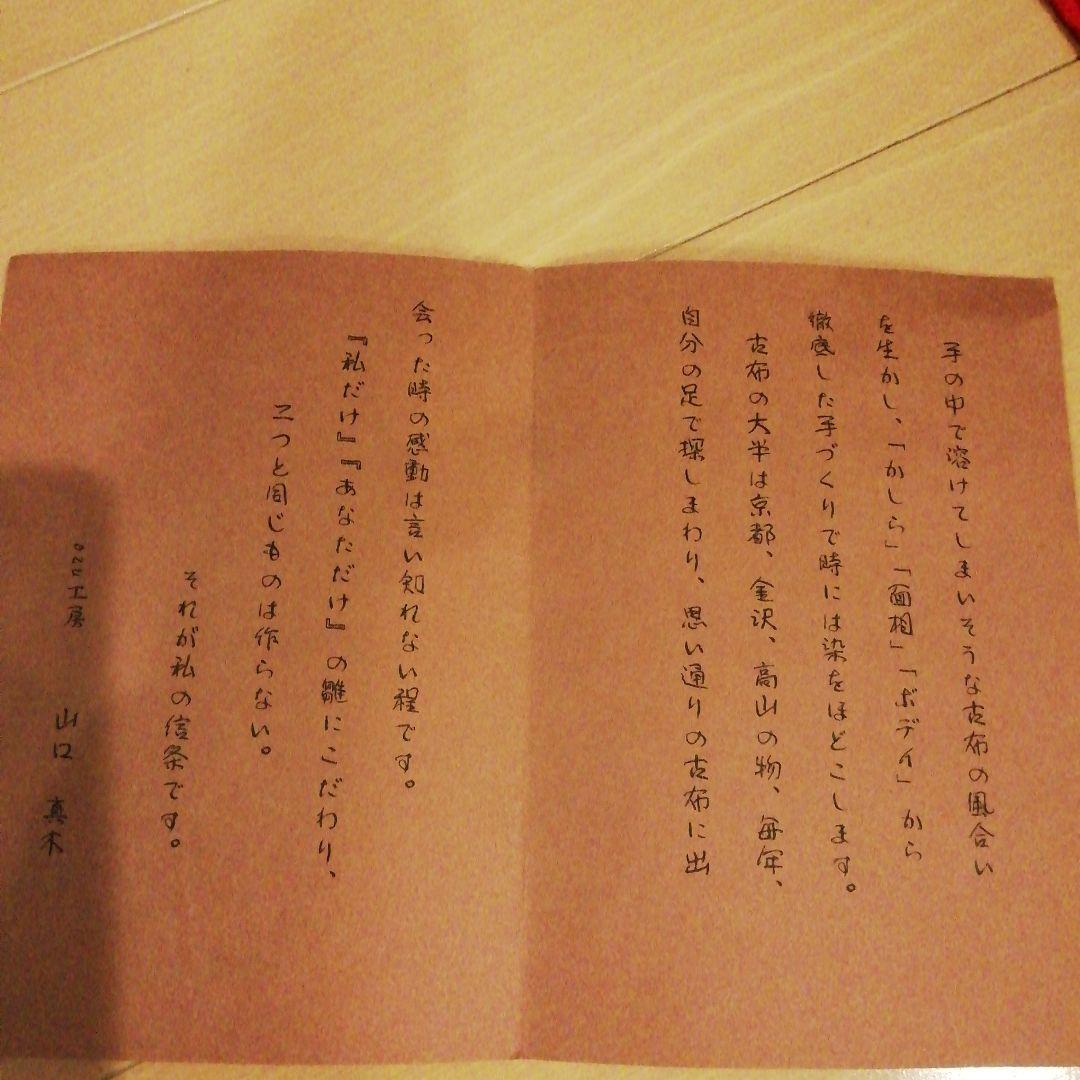 手の中で溶けてしまいそうな古布の風合い
を生かし、「かしら」「面相」「ボディ」から
徹底した手づくりで時には染をほどこします。
古布の大半は京都、金沢、高山の物、毎年、
自分の足で探しまわり、思い通りの古布に出
会った時の感動は言い知れない程です。
『私だけ』『あなただけ』の雛にこだわり、
二つと同じものは作らない。
それが私の信条です。
工房 山口 真木